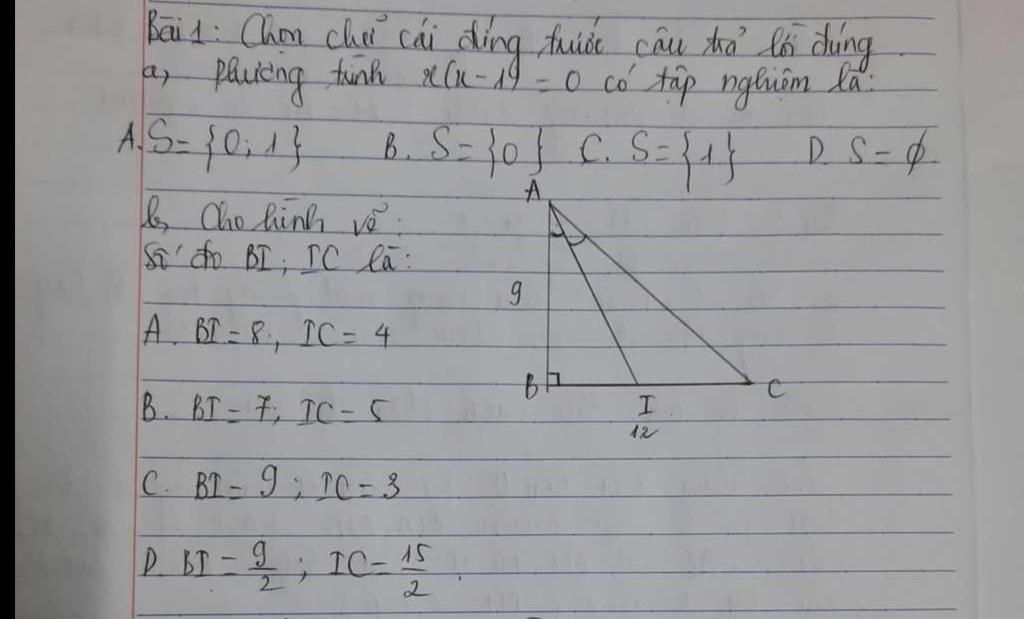 Bài 1: Chọn chữ cái đứng trước câu trả lời đúng
a, Phương trình x(x-1) = 0 có tập nghiệm là:
A. S = {0; 1} B. S = {0} C. S = {1} D. S = ϕ.
b, Cho hình vẽ:
Số đo BI; IC là:
A
9
A. BI = 8; IC = 4
B C
I
12
B. BI = 7; IC = 5
C. BI = 9; IC = 3
D. BI = 9/2; IC = 15/2.